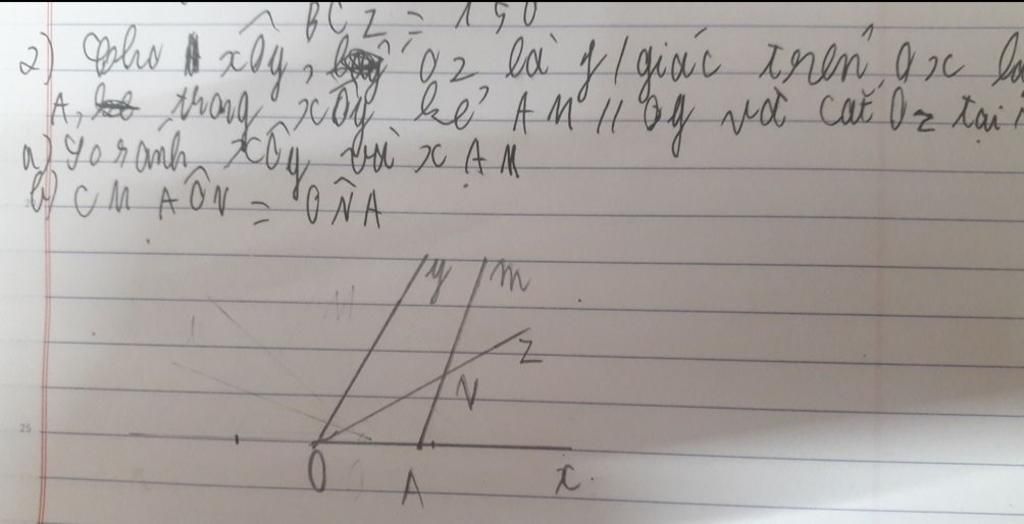 BCz = 150
2) Cho xÔy, Oz là f/giác trên Ox là
A, trong xÔy kẻ AM // Oy và cắt Oz tại
a) so sánh xÔy và xAM
b) CM AÔN = ON̂A
y m
z
N
O A x
25